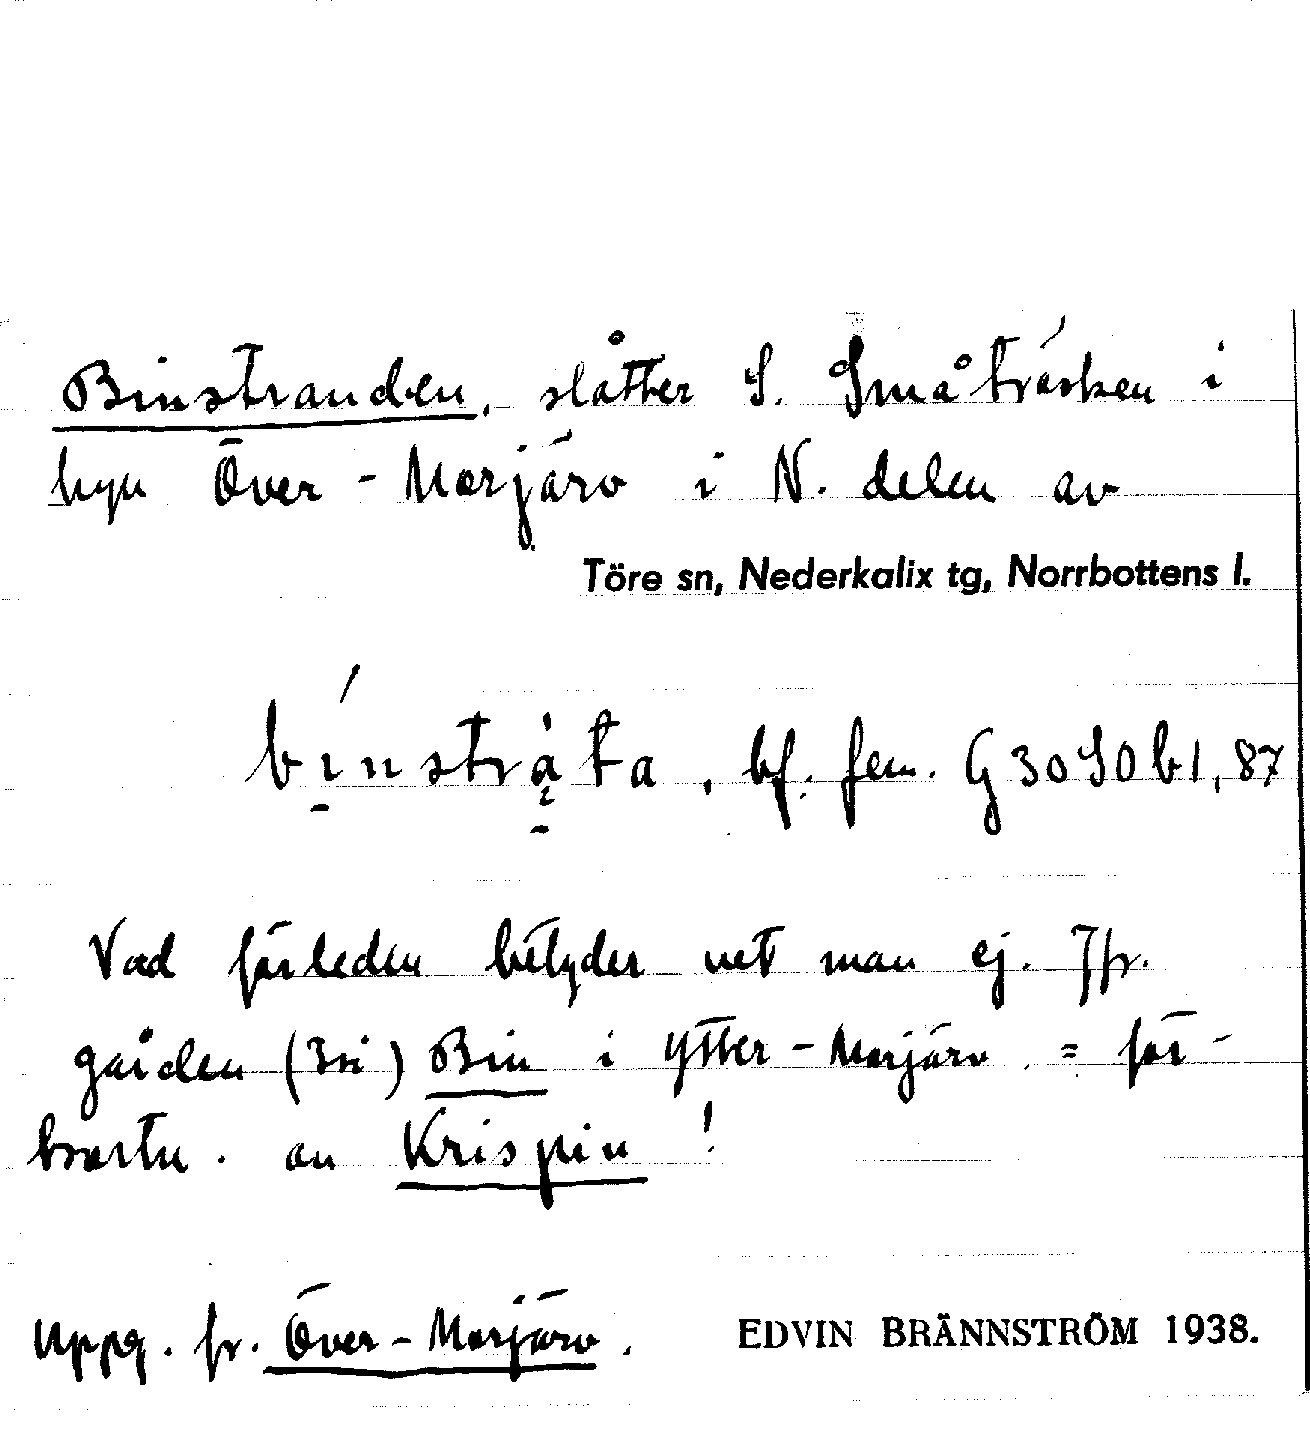 Binstranden, slåtter S. Småträsken i
byn Över-Morjärv i N. delen av
Töre sn, Nederkalix tg, Norrbottens l.
bf. fem. G 30 S0 b1, 87
Vad förleden betyder vet man ej. Jfr.
gården (3:si) Bin i Ytter-Morjärv = för-
kortn. av Krispin!
Uppg. fr. Över-Morjärv.
EDVIN BRÄNNSTRÖM 1938.